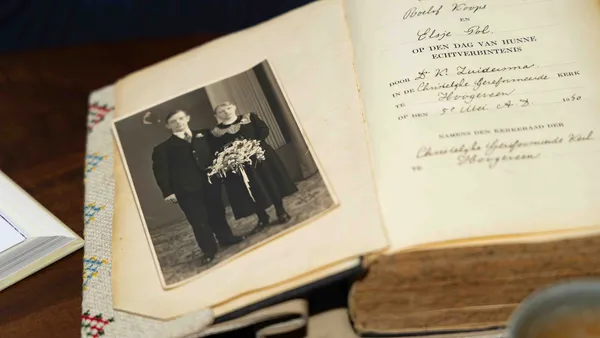 Roelof Koops
EN
Elsje Pol.
OP DEN DAG VAN HUNNE
ECHTVERBINTENIS
DOOR Ds K. Zuidersma
IN DE Christelijke Gereformeerde KERK
TE Hoogeveen
OP DEN 5e Mei A.D. 1950
NAMENS DEN KERKERAAD DER
Christelijke Gereformeerde Kerk
TE Hoogeveen